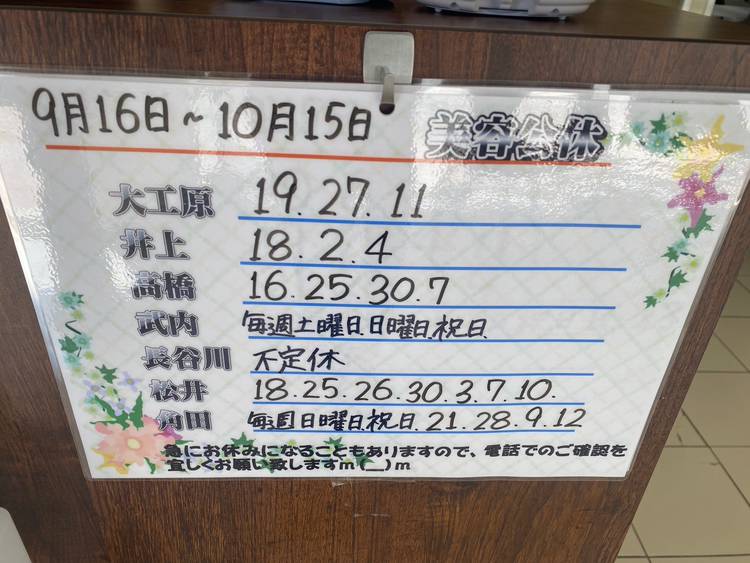 9月16日~10月15日 美容公休
大工原 19.27.11
井上 18.2.4
高橋 16.25.30.7
武内 毎週土曜日.日曜日.祝日
長谷川 不定休
松井 18.25.26.30.3.7.10.
角田 毎週日曜日祝日.21.28.9.12
急にお休みになることもありますので、電話でのご確認を
宜しくお願い致しますm(__)m